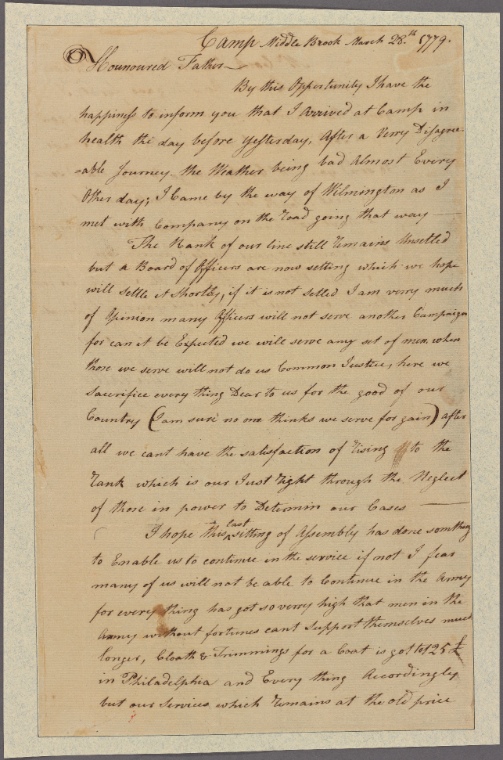 Camp Middle Brook March 28th 1779.
Hounoured Father
By this Opportunity I have the
happiness to inform you that I Arrived at Camp in
health the day before yesterday, After a Verry Disagree-
-able Journey the Weather being bad Almost Every
Other day; I Came by the way of Wilmington as I
met with Company on the road going that way
The Rank of our line still remains Unsetled
but a Board of Officers are now setting which we hope
will settle it Shortly, if it is not setled I am verry much
of Opinion many Officers will not serve another Campaign
for can it be Expected we will serve any set of men when
those we serve will not do us Common Justice, here we
sacrifice every thing Dear to us for the good of our
Country (I am sure no one thinks we serve for gain) after
all we cant have the satisfaction of rising to the
Rank which is our Just right through the Neglect
of those in power to Determin our Cases
I hope this last setting of Assembly has done something
to Enable us to continue in the service if not I fear
many of us will not be able to Continue in the Army
for every thing has got so verry high that men in the
Army without fortunes cant support themselves much
longer, Cloath & Trimmings for a Coat is got to 125 £
in Philadelphia and Every thing Accordingley
but our Services which remains at the old price